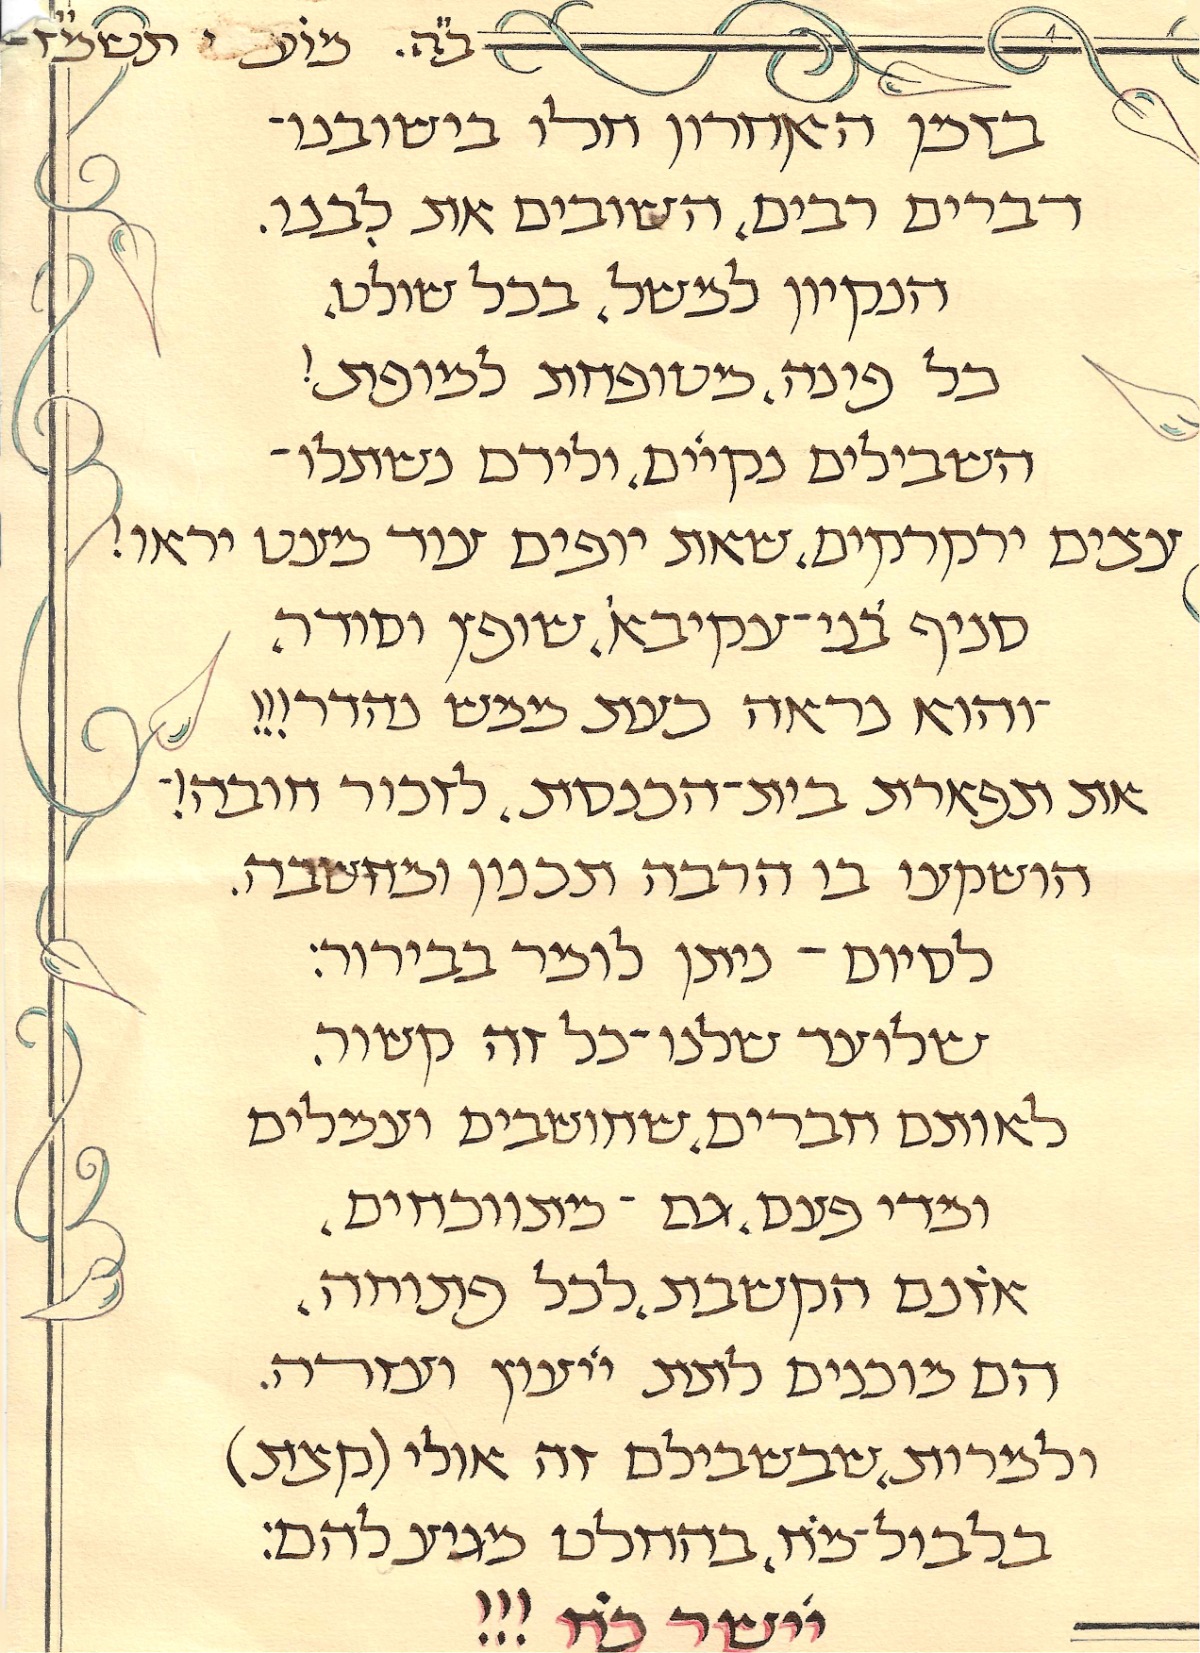 ב"ה. תשמ"ז
בזמן האחרון חלו בישובנו-
דברים רבים, השובים את לבנו.
הנקיון למשל, בכל שולט,
כל פינה, מטופחת למופת!
השבילים נקיים, ולידם נשתלו-
עצים ירקרקים, שאת יופים עוד מעט יראו!
סניף 'בני-עקיבא', שופץ וסודר,
-והוא נראה כעת ממש נהדר!!!
את תפארת בית-הכנסת, לזכור חובה!-
הושקעו בו הרבה תכנון ומחשבה.
לסיום - ניתן לומר בבירור:
שלועד שלנו-כל זה קשור.
לאותם חברים, שחושבים ועמלים
ומדי פעם, גם - מתווכחים,
אזנם הקשבת, לכל פתוחה,
הם מוכנים לתת ייעוץ ועזרה.
ולמרות, שבשבילם זה אולי (קצת)
בלבול-מח, בהחלט מגיע להם:
יישר כח !!!